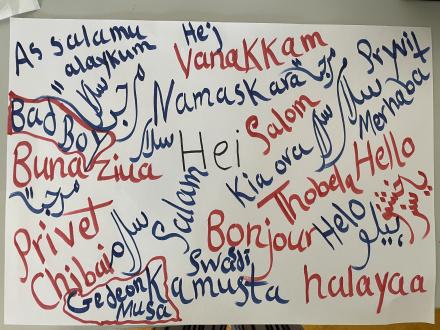 As salamu
alaykum
Hej
Vanakkam
Prywit
Bad
Boy
سلام
مرحبا
Namaskara
مرحبا
سلام
Merhaba
Buna ziua
سلام
Hei
Salom
Kia ora
Thobela
Hello
مرحبا
Privet
سلام
Salam
Bonjour
Helo
Chibai
Gedeon
Musa
Swadi
Kamusta
halayaa